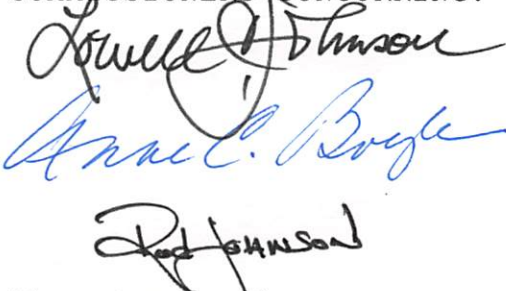 Lowell C. Johnson
Anne C. Boyle
Rod Johnson